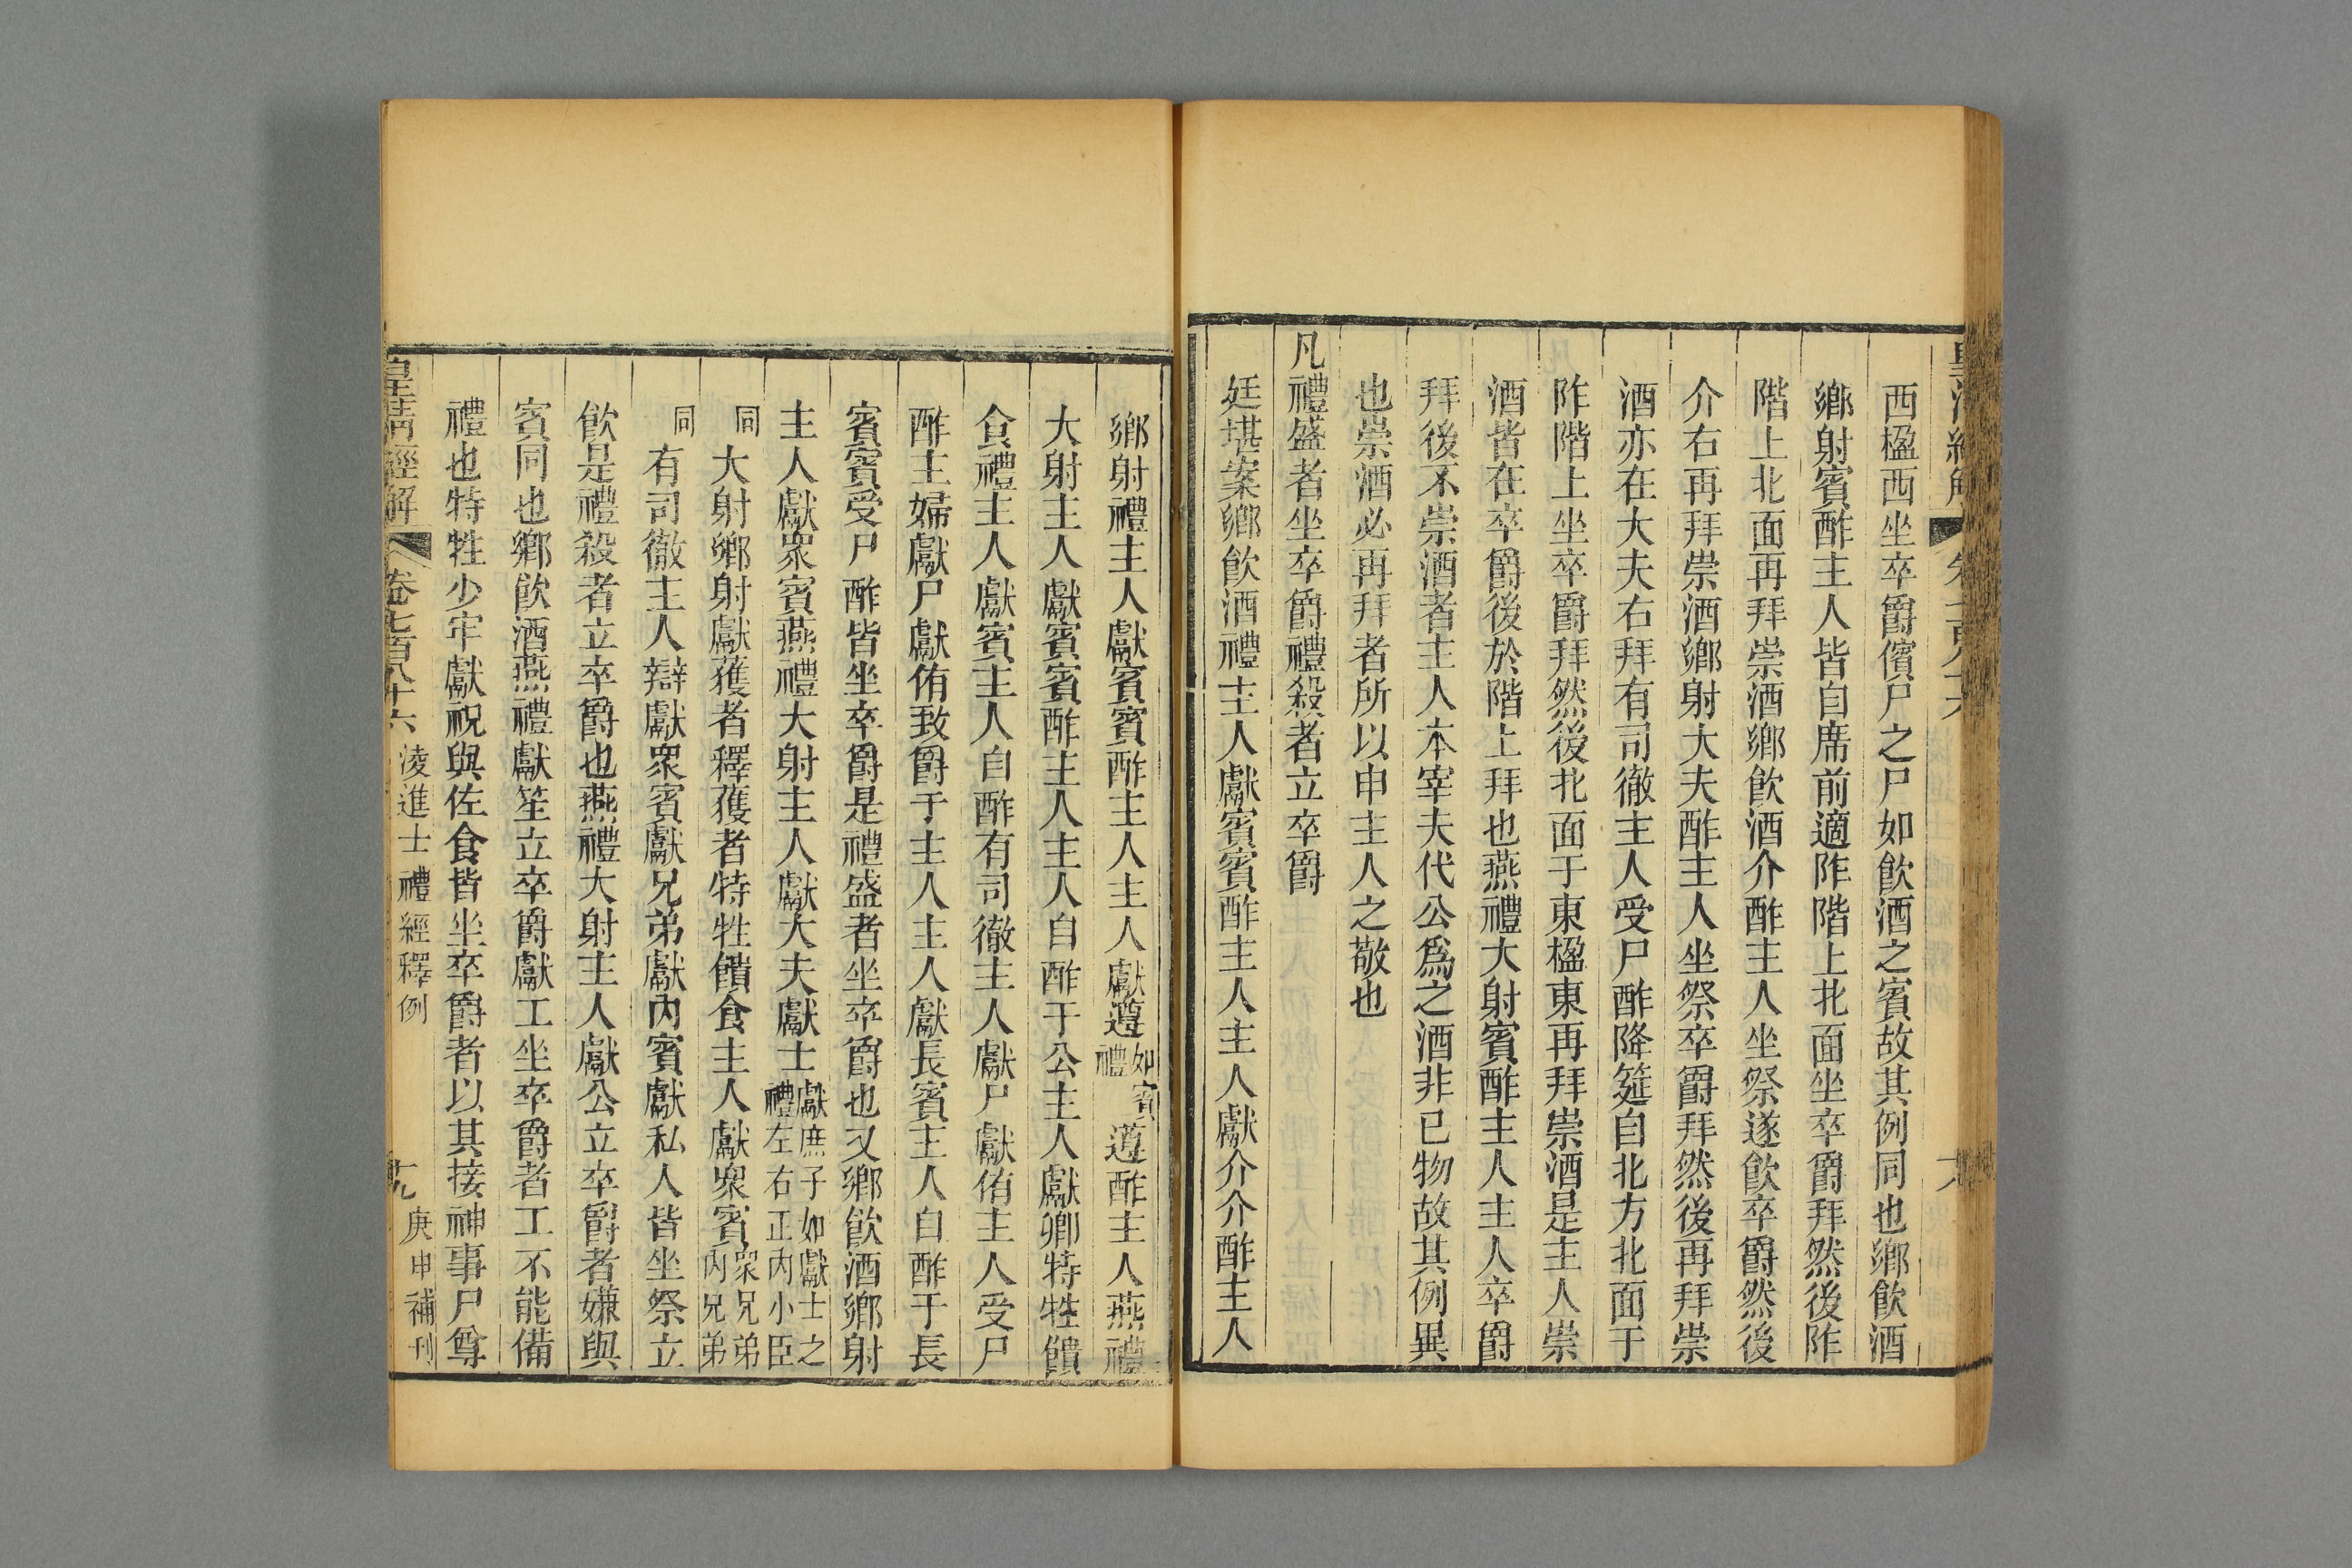 西楹西坐卒爵儐尸之尸如飲酒之賓故其例同也鄉飲酒
鄉射賓酢主人皆自席前適阼階上北面坐卒爵拜然後阼
階上北面再拜崇酒鄉飲酒介酢主人坐祭遂飲卒爵然後
介右再拜崇酒鄉射大夫酢主人坐祭卒爵拜然後再拜崇
酒亦在大夫右拜有司徹主人受尸酢降筵自北方北面于
阼階上坐卒爵拜然後北面于東楹東再拜崇酒是主人崇
酒皆在卒爵後於階上拜也燕禮大射賓酢主人主人卒爵
拜後不崇酒者主人本宰夫代公爲之酒非已物故其例異
也崇酒必再拜者所以申主人之敬也
凡禮盛者坐卒爵禮殺者立卒爵
廷堪案鄉飲酒禮主人獻賓賓酢主人主人獻介介酢主人
鄉射禮主人獻賓賓酢主人主人獻遵如賓禮遵酢主人燕禮
大射主人獻賓賓酢主人主人自酢于公主人獻卿特牲饋
食禮主人獻賓主人自酢有司徹主人獻尸獻侑主人受尸
酢主婦獻尸獻侑致爵于主人主人獻長賓主人自酢于長
賓賓受尸酢皆坐卒爵是禮盛者坐卒爵也又鄉飲酒鄉射
主人獻眾賓燕禮大射主人獻大夫獻士獻庶子如獻士之禮左右正內小臣
同大射鄉射獻獲者釋獲者特牲饋食主人獻眾賓眾兄弟內兄弟
同有司徹主人辯獻眾賓獻兄弟獻內賓獻私人皆坐祭立
飲是禮殺者立卒爵也燕禮大射主人獻公立卒爵者嫌與
賓同也鄉飲酒燕禮獻笙立卒爵獻工坐卒爵者工不能備
禮也特牲少牢獻祝與佐食皆坐卒爵者以其接神事尸尊
皇清經解 卷七百八十六 淩進士禮經釋例 十九 庚申補刊